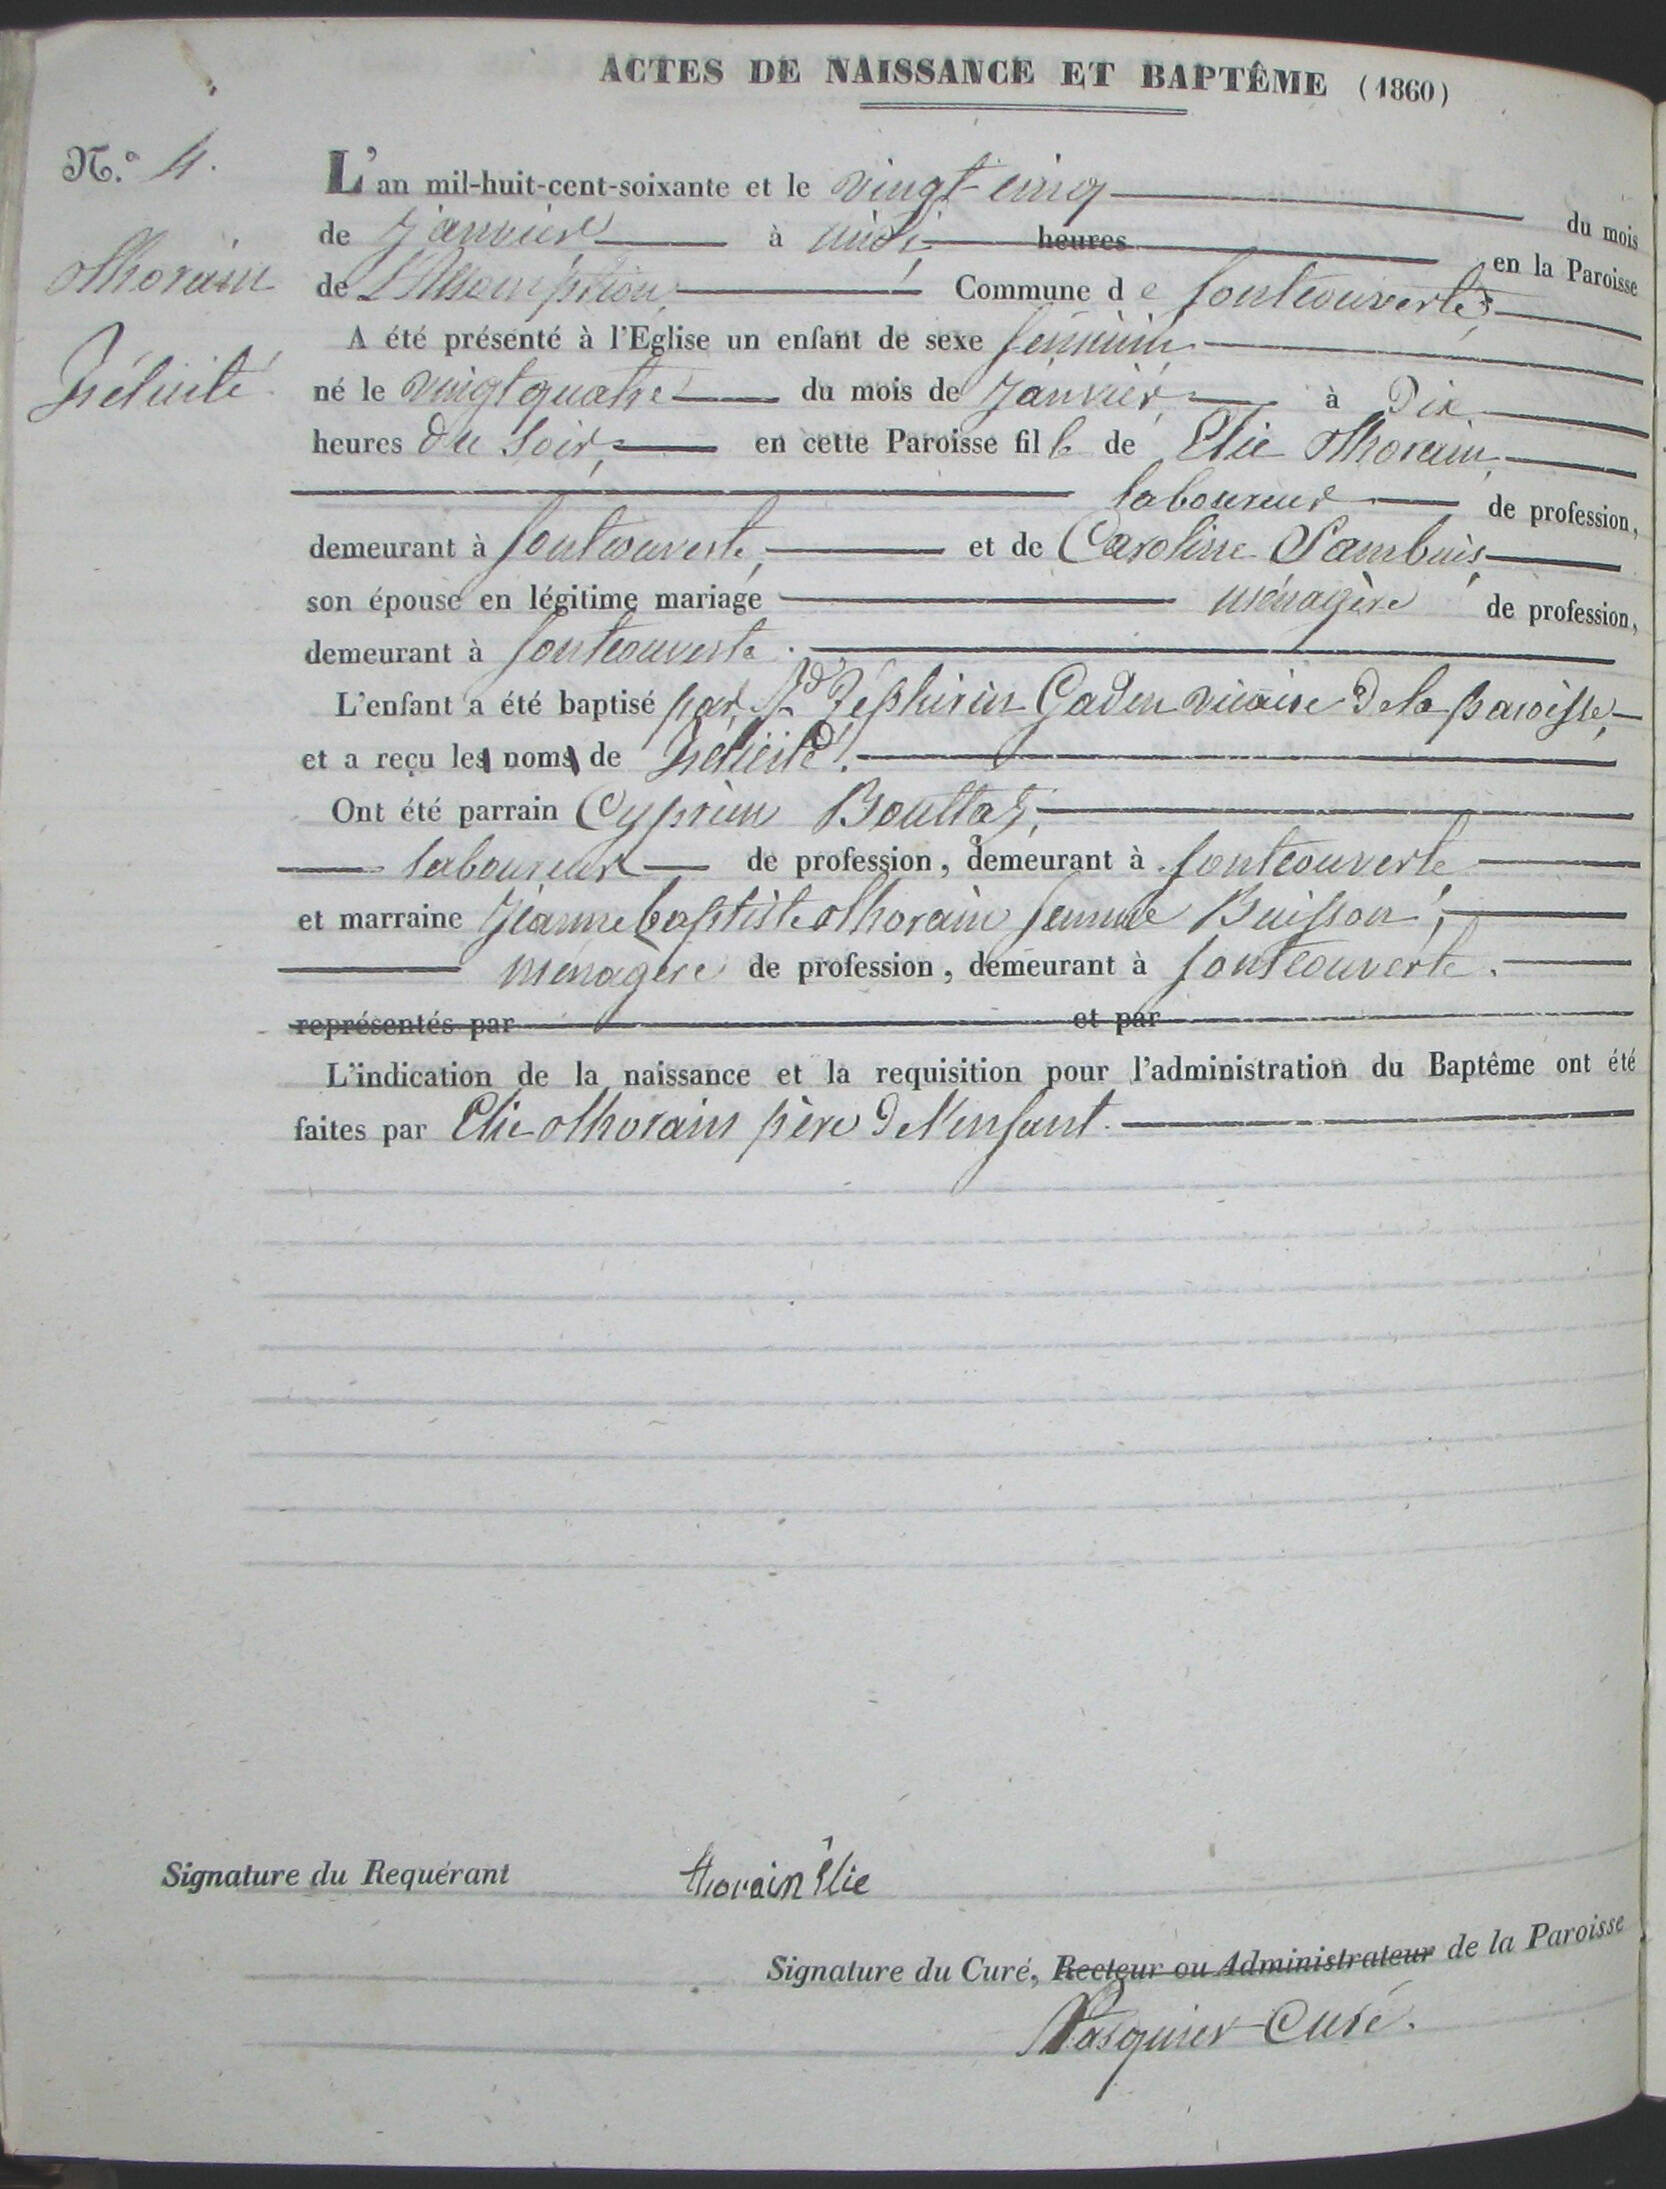 ACTES DE NAISSANCE ET BAPTÊME (1860)
N.º 4.
Thorain
Félicité
L'an mil-huit-cent-soixante et le vingt-cinq du mois
de Janvier à midi heures en la Paroisse
de L'Assomption, Commune de fontcouverte,
A été présenté à l'Eglise un enfant de sexe féminin
né le vingt quatre du mois de Janvier, à Dix
heures du soir, en cette Paroisse fille de Elie Thorain
laboureur de profession,
demeurant à fontcouverte, et de Caroline Sambuis,
son épouse en légitime mariage ménagère de profession,
demeurant à fontcouverte.
L'enfant a été baptisé par Rd Zéphirin Gaden vicaire de la paroisse,
et a reçu les noms de Félicité.
Ont été parrain Cyprien Bouttaz,
laboureur de profession, demeurant à fontcouverte
et marraine Jeanne baptiste Thorain femme Buisson,
ménagère de profession, demeurant à fontcouverte.
représentés par et par
L'indication de la naissance et la requisition pour l'administration du Baptême ont été
faites par Elie Thorain père de l'enfant.
Signature du Requérant thorain élie
Signature du Curé, Recteur ou Administrateur de la Paroisse
Pasquier Curé.